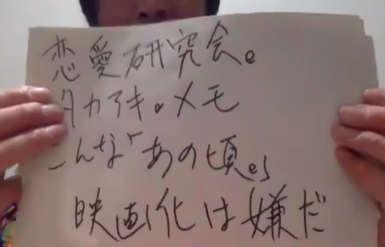 恋愛研究会。
タカアキ。メモ
こんな"あの頃。"
映画化は嫌だ